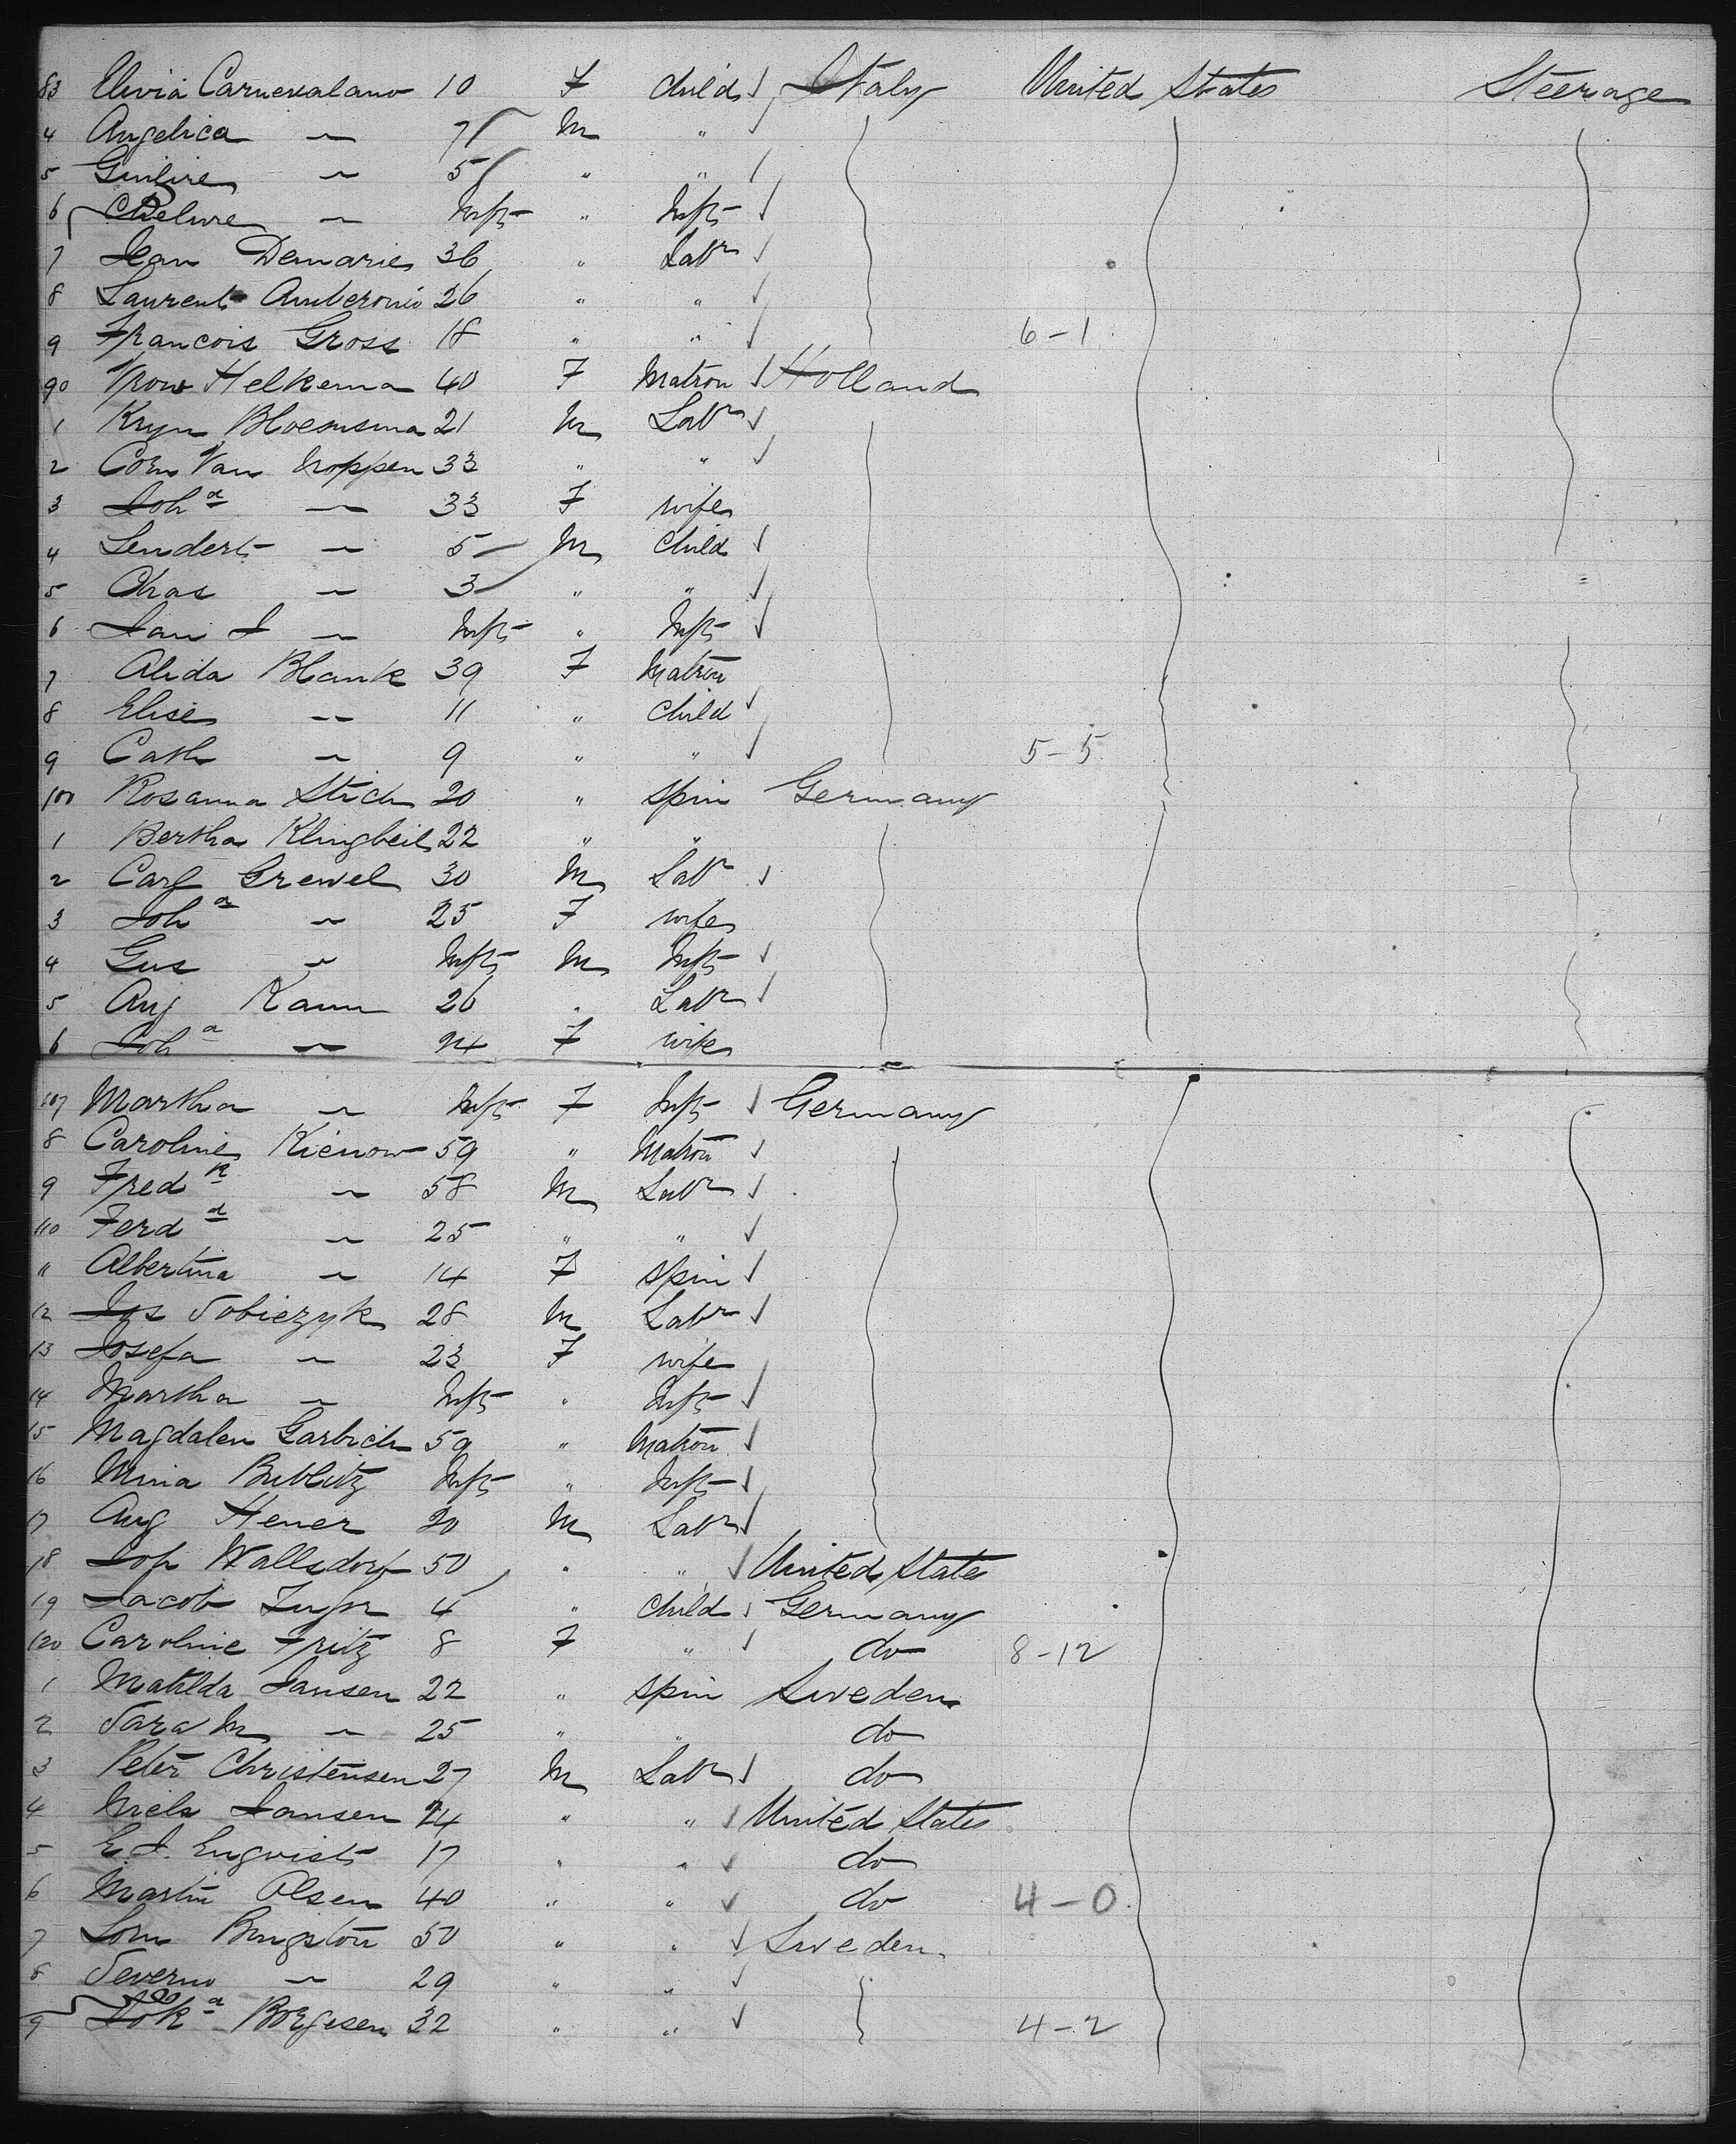 83 Elivia Carnevalano 10 F child Italy United States Steerage
4 Angelica " 7 M "
5 " 5 " "
6 " Inft " Inft
7 Jean Demarie 36 " Labr
8 Laurent Amberonio 26 " "
9 Francois Gross 18 " " 6-1
90 Vrow Helkema 40 F Matron Holland
1 Kryn Bloemsma 21 M Labr
2 Corn Van Noppen 33 " "
3 Joha " 33 F wife
4 Lendert " 5 M child
5 Chas " 3 " "
6 Jan J " Inft " Inft
7 Alida Blank 39 F Matron
8 Elise " 11 " child
9 Cath " 9 " " 5-5
100 Rosanna Stich 20 " spin Germany
1 Bertha Klingbeil 22 " "
2 Carl Grewel 30 M Labr
3 Joha " 25 F wife
4 Gus " Inft M Inft
5 Aug Kann 26 " Labr
6 Joha " 24 F wife
107 Martha " Inft F Inft Germany
8 Caroline Kienow 59 " Matron
9 Fredk " 58 M Labr
110 Ferdd " 25 " "
11 Albertina " 14 F spin
12 Jos Sobiezyk 28 M Labr
13 Josefa " 23 F wife
14 Martha " Inft " Inft
15 Magdalen Garbich 59 " Matron
16 Mina Bublitz Inft " Inft
17 Aug Hener 20 M Labr
18 Joh Wallsdorf 50 " " United States
19 Jacob 4 " child Germany
120 Caroline Fritz 8 F " do 8-12
1 Matilda Jansen 22 " spin Sweden
2 Sara M " 25 " " do
3 Peter Christensen 27 M Labr do
4 Niels Jansen 24 " " United States
5 E. J. Engvist 17 " " do
6 Martin Olsen 40 " " do 4-0
7 Bengston 50 " " Sweden
8 Severin " 29 " "
9 Borgesen 32 " " 4-2